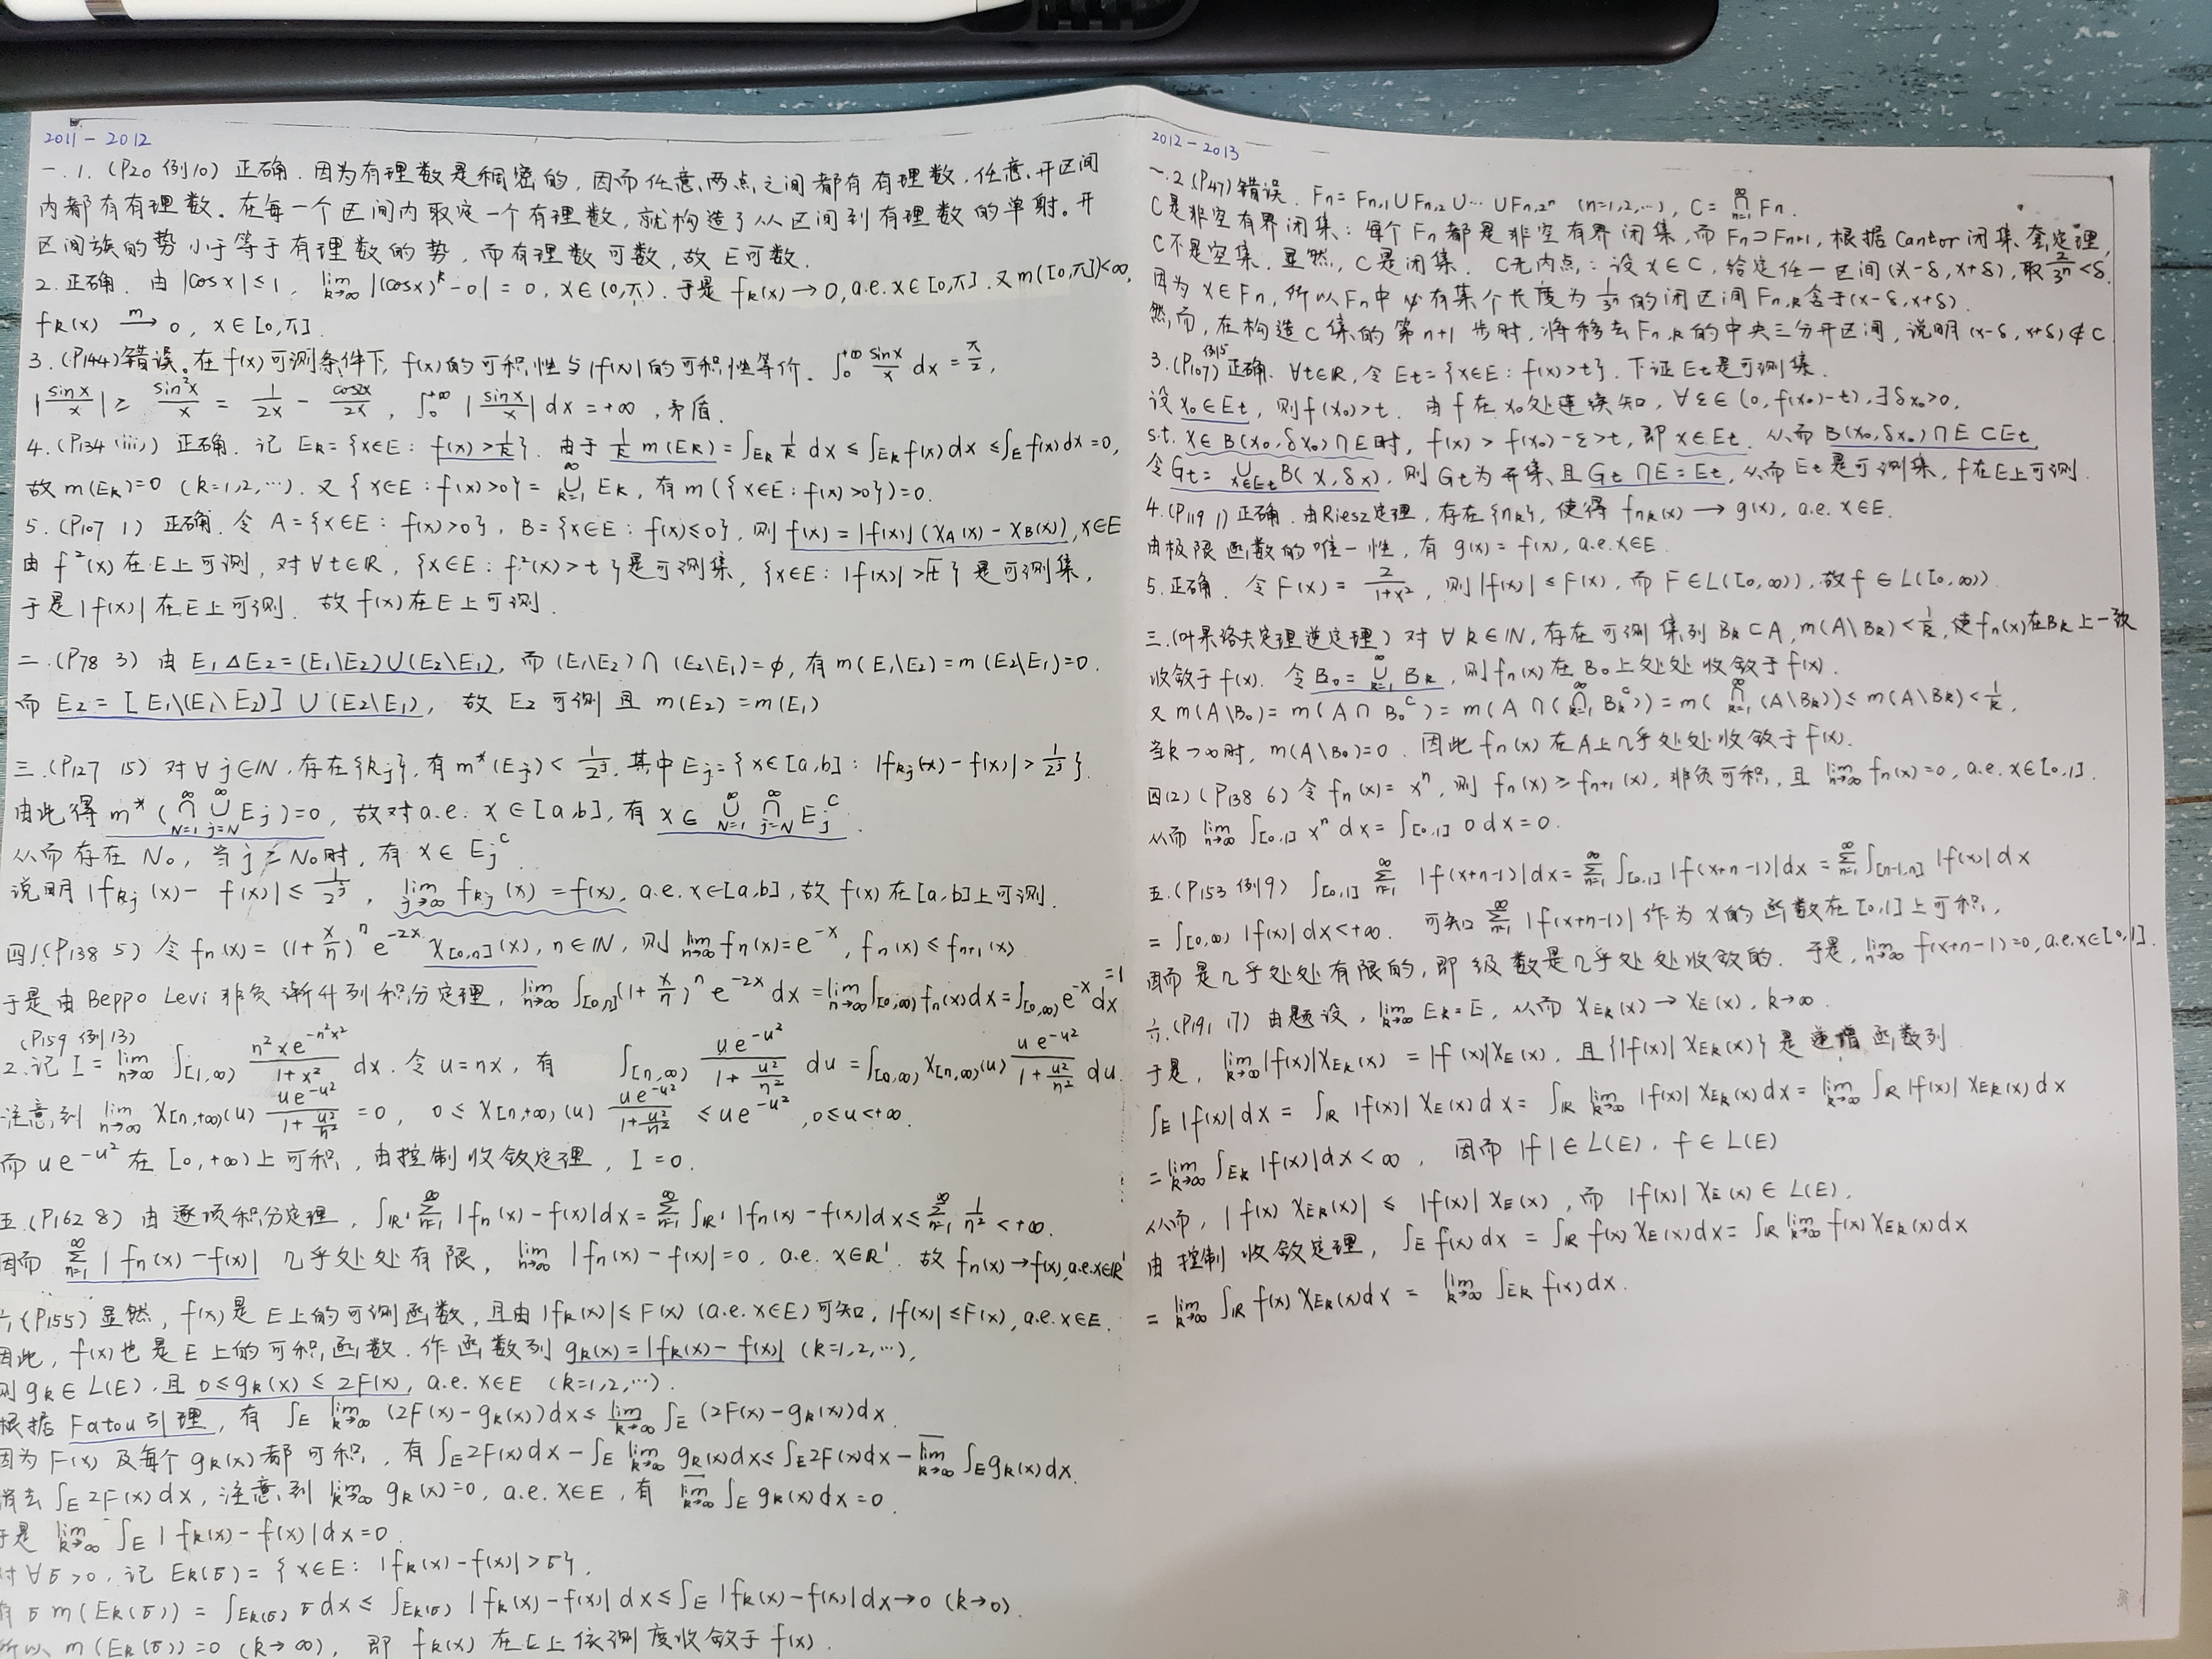 2011-2012
一.1.(P20 例10) 正确. 因为有理数是稠密的, 因而任意两点之间都有有理数. 任意开区间
内都有有理数. 在每一个区间内取定一个有理数, 就构造了从区间到有理数的单射. 开
区间族的势小于等于有理数的势, 而有理数可数, 故E可数.
2.正确. 由 |cosx|≤1, lim_{k→∞} |(cosx)^k-0|=0, x∈(0,π). 于是 f_k(x)→0, a.e. x∈[0,π]. 又m([0,π])<∞,
f_k(x) →^m 0, x∈[0,π].
3.(P144)错误. 在f(x)可测条件下, f(x)的可积性与|f(x)|的可积性等价. ∫_0^{+∞} sinx/x dx = π/2,
|sinx/x| ≥ sin²x/x = 1/2x - cos2x/2x, ∫_0^{+∞} |sinx/x| dx=+∞, 矛盾.
4.(P134 (iii)) 正确. 记 E_k={x∈E: f(x)>1/k}. 由于 1/k m(E_k)=∫_{E_k} 1/k dx ≤ ∫_{E_k} f(x)dx ≤ ∫_E f(x)dx=0,
故 m(E_k)=0 (k=1,2,…). 又 {x∈E: f(x)>0}= ∪_{k=1}^∞ E_k, 有 m({x∈E: f(x)>0})=0.
5.(P107 1) 正确. 令 A={x∈E: f(x)>0}, B={x∈E: f(x)≤0}, 则 f(x)=|f(x)|(χ_A(x)-χ_B(x)), x∈E
由 f²(x)在E上可测, 对∀t∈R, {x∈E: f²(x)>t}是可测集, {x∈E: |f(x)|>√t}是可测集,
于是|f(x)|在E上可测. 故f(x)在E上可测.
二.(P78 3) 由 E₁△E₂=(E₁\E₂)∪(E₂\E₁), 而 (E₁\E₂)∩(E₂\E₁)=∅, 有 m(E₁\E₂)=m(E₂\E₁)=0.
而 E₂=[E₁\(E₁\E₂)]∪(E₂\E₁), 故 E₂ 可测 且 m(E₂)=m(E₁)
三.(P127 15) 对∀j∈N, 存在{k_j}, 有 m*(E_j)<1/2^j, 其中 E_j={x∈[a,b]: |f_{k_j}(x)-f(x)|>1/2^j}.
由此得 m*(∩_{N=1}^∞ ∪_{j=N}^∞ E_j)=0, 故对a.e. x∈[a,b], 有 x∈ ∪_{N=1}^∞ ∩_{j=N}^∞ E_j^C.
从而存在N₀, 当j≥N₀时, 有 x∈E_j^C
说明|f_{k_j}(x)-f(x)|≤1/2^j, lim_{j→∞} f_{k_j}(x)=f(x), a.e. x∈[a,b], 故f(x)在[a,b]上可测.
四1.(P138 5) 令 f_n(x)=(1+x/n)^n e^{-2x} χ_{[0,n]}(x), n∈N, 则 lim_{n→∞} f_n(x)=e^{-x}, f_n(x)≤f_{n+1}(x)
于是由Beppo Levi 非负渐升列积分定理, lim_{n→∞} ∫_{[0,n]} (1+x/n)^n e^{-2x} dx = lim_{n→∞} ∫_{[0,∞)} f_n(x)dx=∫_{[0,∞)} e^{-x}dx =1
(P159 例13)
2.记 I= lim_{n→∞} ∫_{[1,∞)} n²xe^{-n²x²}/(1+x²) dx. 令 u=nx, 有 ∫_{[n,∞)} ue^{-u²}/(1+u²/n²) du=∫_{[0,∞)} χ_{[n,∞)}(u) ue^{-u²}/(1+u²/n²) du.
注意到 lim_{n→∞} χ_{[n,+∞)}(u) ue^{-u²}/(1+u²/n²) =0, 0≤χ_{[n,+∞)}(u) ue^{-u²}/(1+u²/n²) ≤ue^{-u²}, 0≤u<+∞.
而 ue^{-u²} 在 [0,+∞)上可积, 由控制收敛定理, I=0.
五.(P162 8) 由逐项积分定理, ∫_{R¹} Σ_{n=1}^∞ |f_n(x)-f(x)|dx=Σ_{n=1}^∞ ∫_{R¹} |f_n(x)-f(x)|dx≤Σ_{n=1}^∞ 1/n² <+∞.
因而 Σ_{n=1}^∞ |f_n(x)-f(x)| 几乎处处有限, lim_{n→∞} |f_n(x)-f(x)|=0, a.e. x∈R¹. 故 f_n(x)→f(x), a.e. x∈R¹
六(P155) 显然, f(x)是E上的可测函数, 且由|f_k(x)|≤F(x) (a.e. x∈E)可知, |f(x)|≤F(x), a.e. x∈E.
因此, f(x)也是E上的可积函数. 作函数列 g_k(x)=|f_k(x)-f(x)| (k=1,2,…),
则 g_k∈L(E), 且 0≤g_k(x)≤2F(x), a.e. x∈E (k=1,2,…).
根据Fatou引理, 有 ∫_E lim_{k→∞} (2F(x)-g_k(x))dx≤ \underline{lim}_{k→∞} ∫_E (2F(x)-g_k(x))dx.
因为F(x)及每个g_k(x)都可积, 有∫_E 2F(x)dx-∫_E lim_{k→∞} g_k(x)dx≤∫_E 2F(x)dx-\overline{lim}_{k→∞} ∫_E g_k(x)dx.
消去∫_E 2F(x)dx, 注意到 lim_{k→∞} g_k(x)=0, a.e. x∈E, 有 \overline{lim}_{k→∞} ∫_E g_k(x)dx=0.
于是 lim_{k→∞} ∫_E |f_k(x)-f(x)|dx=0.
对∀σ>0, 记 E_k(σ)={x∈E: |f_k(x)-f(x)|>σ},
有 σm(E_k(σ))=∫_{E_k(σ)} σdx≤∫_{E_k(σ)} |f_k(x)-f(x)|dx≤∫_E |f_k(x)-f(x)|dx→0 (k→0).
所以 m(E_k(σ))=0 (k→∞), 即 f_k(x) 在E上依测度收敛于f(x).
2012-2013
一.2(P47)错误. F_n=F_{n,1}∪F_{n,2}∪…∪F_{n,2^n} (n=1,2,…), C=∩_{n=1}^∞ F_n.
C是非空有界闭集: 每个F_n都是非空有界闭集, 而F_n⊃F_{n+1}, 根据Cantor闭集套定理,
C不是空集. 显然, C是闭集. C无内点: 设x∈C, 给定任一区间(x-δ,x+δ), 取2/3^n<δ.
因为x∈F_n, 所以F_n中必有某个长度为1/3^n的闭区间F_{n,k}含于(x-δ,x+δ).
然而, 在构造C集的第n+1步时, 将移去F_{n,k}的中央三分开区间, 说明(x-δ,x+δ)⊄C
3.(P107 例5)正确. ∀t∈R, 令 E_t={x∈E: f(x)>t}. 下证E_t是可测集.
设x₀∈E_t, 则f(x₀)>t. 由f在x₀处连续知, ∀ε∈(0,f(x₀)-t), ∃δ_{x₀}>0,
s.t. x∈B(x₀,δ_{x₀})∩E时, f(x)>f(x₀)-ε>t, 即x∈E_t. 从而B(x₀,δ_{x₀})∩E⊂E_t.
令 G_t= ∪_{x∈E_t} B(x,δ_x), 则G_t为开集, 且G_t∩E=E_t, 从而E_t是可测集, f在E上可测.
4.(P119 1)正确. 由Riesz定理, 存在{n_k}, 使得 f_{n_k}(x)→g(x), a.e. x∈E.
由极限函数的唯一性, 有 g(x)=f(x), a.e. x∈E.
5.正确. 令F(x)=2/(1+x²), 则|f(x)|≤F(x), 而F∈L([0,∞)), 故f∈L([0,∞)).
三.(叶果洛夫定理逆定理) 对∀k∈N, 存在可测集列B_k⊂A, m(A\B_k)<1/k, 使f_n(x)在B_k上一致
收敛于f(x). 令B₀=∪_{k=1}^∞ B_k, 则f_n(x)在B₀上处处收敛于f(x).
又m(A\B₀)=m(A∩B₀^C)=m(A∩(∩_{k=1}^∞ B_k^C))=m(∩_{k=1}^∞ (A\B_k))≤m(A\B_k)<1/k,
当k→∞时, m(A\B₀)=0. 因此f_n(x)在A上几乎处处收敛于f(x).
四(2)(P138 6) 令f_n(x)=x^n, 则 f_n(x)≥f_{n+1}(x), 非负可积, 且 lim_{n→∞} f_n(x)=0, a.e. x∈[0,1].
从而 lim_{n→∞} ∫_{[0,1]} x^n dx=∫_{[0,1]} 0dx=0.
五.(P153 例9) ∫_{[0,1]} Σ_{n=1}^∞ |f(x+n-1)|dx=Σ_{n=1}^∞ ∫_{[0,1]} |f(x+n-1)|dx=Σ_{n=1}^∞ ∫_{[n-1,n]} |f(x)|dx
=∫_{[0,∞)} |f(x)|dx<+∞. 可知Σ_{n=1}^∞ |f(x+n-1)|作为x的函数在[0,1]上可积,
因而是几乎处处有限的, 即级数是几乎处处收敛的. 于是, lim_{n→∞} f(x+n-1)=0, a.e. x∈[0,1].
六.(P191 17) 由题设, lim_{k→∞} E_k=E, 从而 χ_{E_k}(x)→χ_E(x), k→∞.
于是, lim_{k→∞} |f(x)|χ_{E_k}(x)=|f(x)|χ_E(x), 且{|f(x)|χ_{E_k}(x)}是递增函数列
∫_E |f(x)|dx=∫_R |f(x)|χ_E(x)dx=∫_R lim_{k→∞} |f(x)|χ_{E_k}(x)dx=lim_{k→∞} ∫_R |f(x)|χ_{E_k}(x)dx
=lim_{k→∞} ∫_{E_k} |f(x)|dx<∞, 因而|f|∈L(E), f∈L(E)
从而, |f(x)χ_{E_k}(x)|≤|f(x)|χ_E(x), 而 |f(x)|χ_E(x)∈L(E).
由控制收敛定理, ∫_E f(x)dx=∫_R f(x)χ_E(x)dx=∫_R lim_{k→∞} f(x)χ_{E_k}(x)dx
=lim_{k→∞} ∫_R f(x)χ_{E_k}(x)dx=lim_{k→∞} ∫_{E_k} f(x)dx.